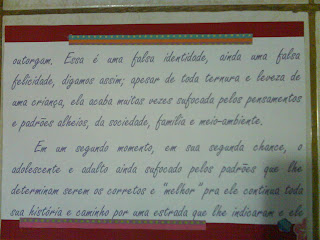 outorgam. Essa é uma falsa identidade, ainda uma falsa
felicidade, digamos assim; apesar de toda ternura e leveza de
uma criança, ela acaba muitas vezes sufocada pelos pensamentos
e padrões alheios, da sociedade, família e meio-ambiente.
Em um segundo momento, em sua segunda chance, o
adolescente e adulto ainda sufocado pelos padrões que lhe
determinam serem os corretos e "melhor" pra ele continua toda
sua história e caminho por uma estrada que lhe indicaram e ele